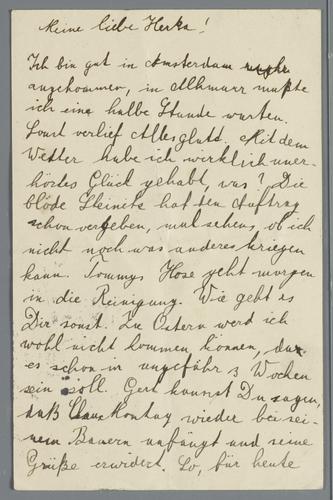 Meine liebe Herka!
Ich bin gut in Amsterdam
angekommen, in Alkmaar mußte
ich eine halbe Stunde warten.
Sonst verlief Alles glatt. Mit dem
Wetter habe ich wirklich uner-
hörtes Glück gehabt, was? Die
blöde Steinitz hat den Auftrag
schon vergeben, mal sehens, ob ich
nicht noch was anderes kriegen
kann. Tommys Hose geht morgen
in die Reinigung. Wie geht es
Dir sonst. Zu Ostern werd ich
wohl nicht kommen können, da
es schon in ungefähr 3 Wochen
sein soll. Gert kannst Du sagen,
daß Claus Montag wieder bei sei-
nem Bauern anfängt und seine
Grüße erwidert. So, für heute